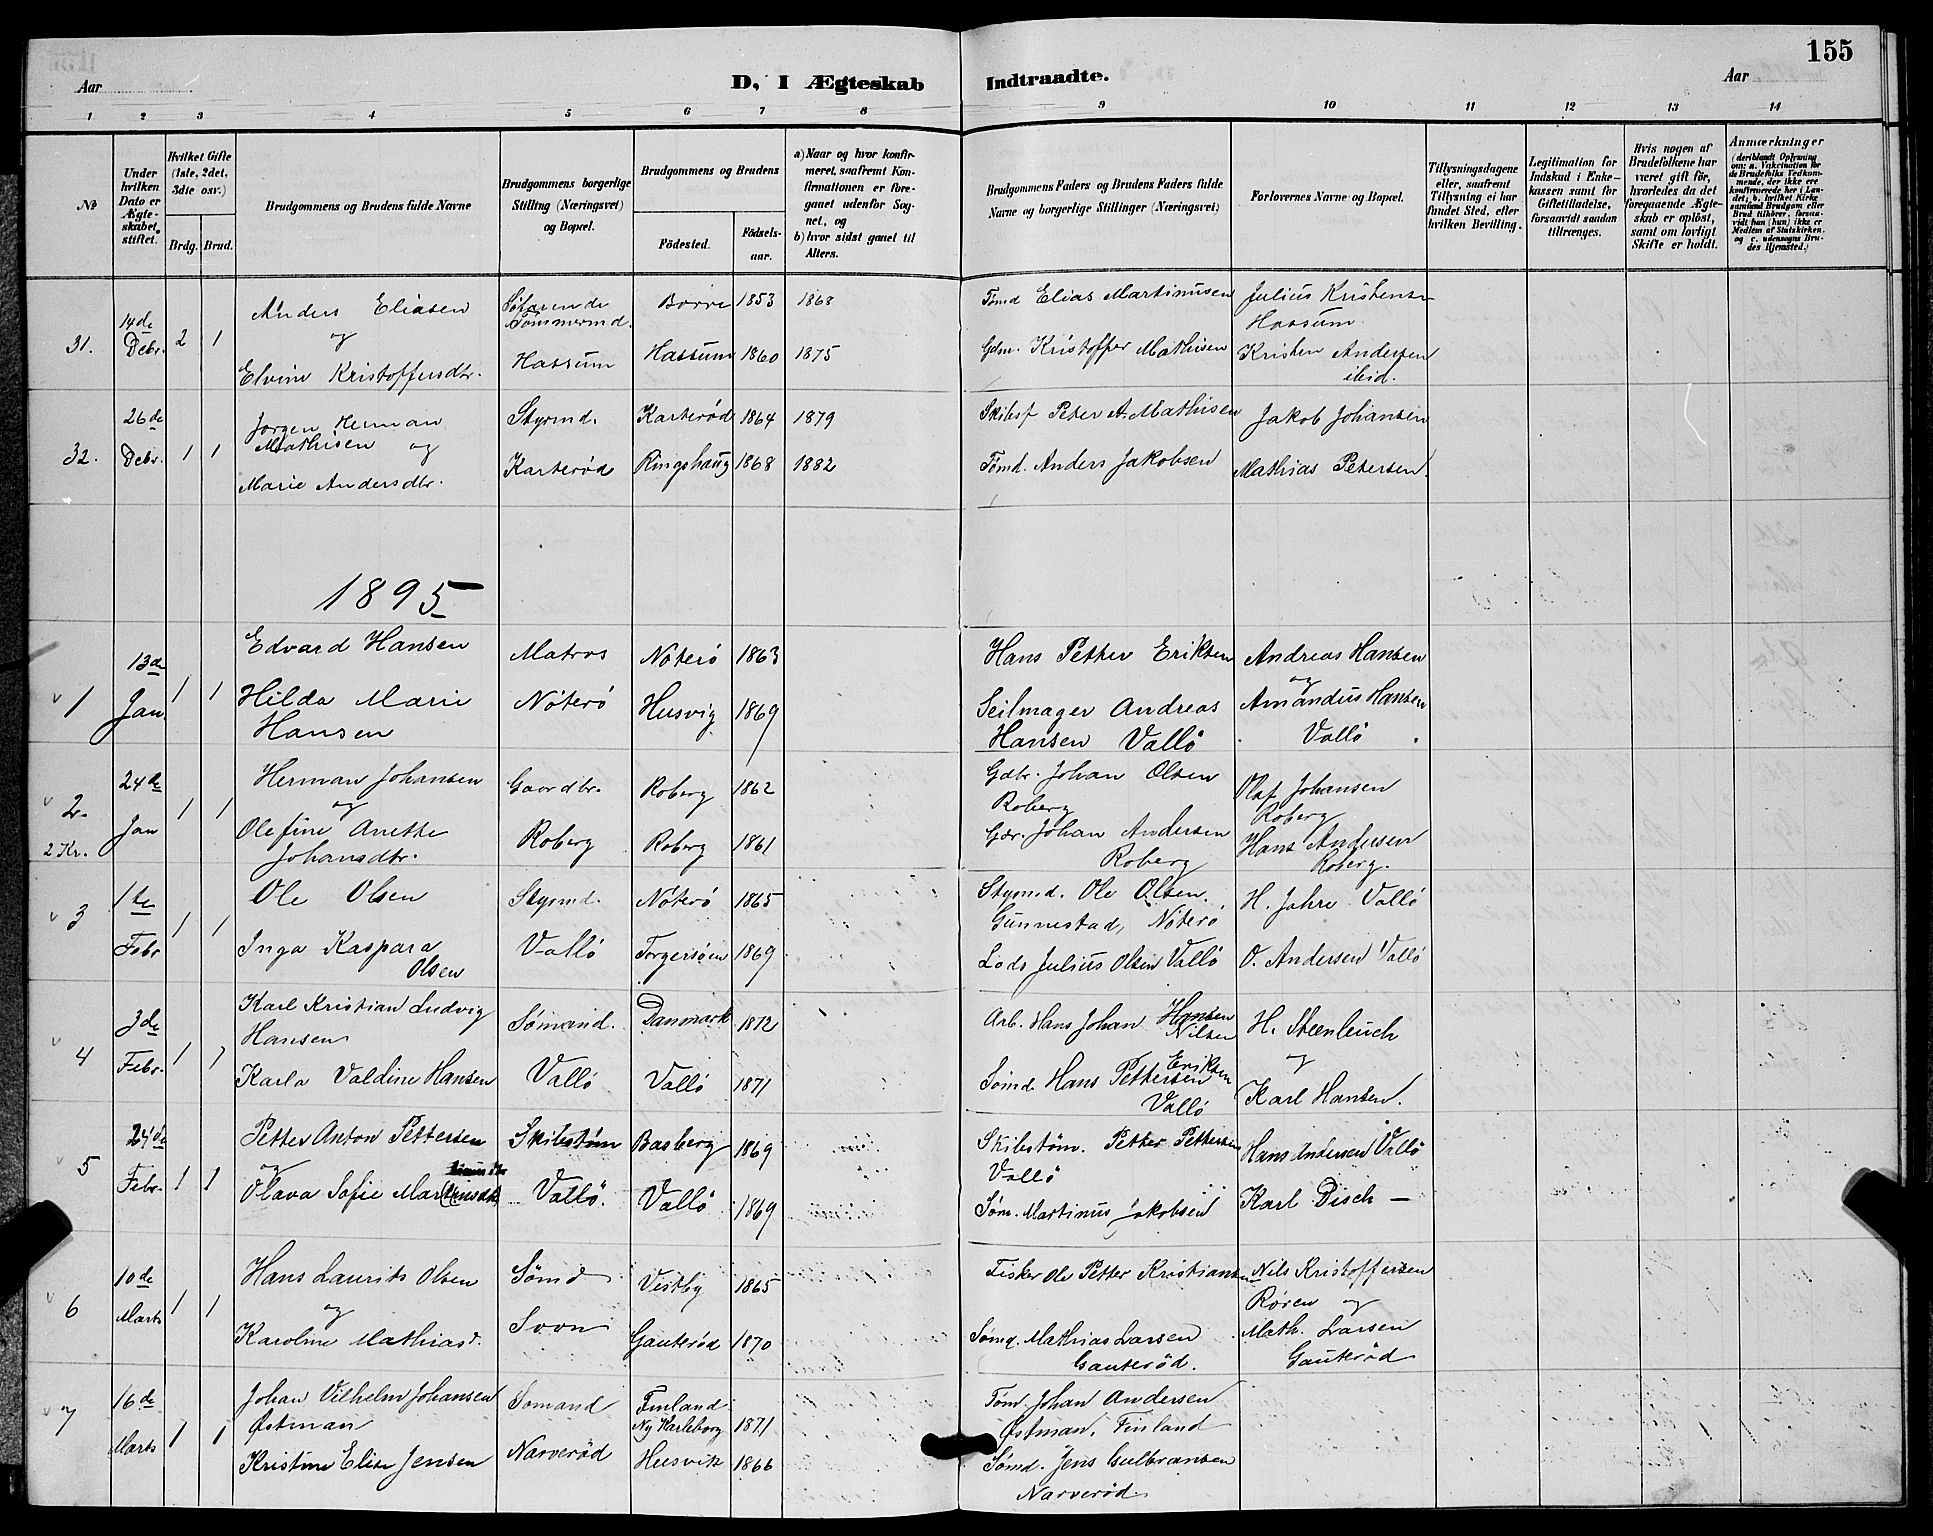 155
Aar
D, I Ægteskab
Indtraadte.
Aar
1 2 3 4 5 6 7 8 9 10 11 12 13 14
No
Under hvilken Dato er Ægteskabet stiftet.
Hvilket Gifte (1ste, 2det, 3die osv.)
Brdg. Brud.
Brudgommens og Brudens fulde Navne
Brudgommens borgerlige Stilling (Næringsvei) og Bopæl.
Brudgommens og Brudens
Fødested.
Fødselsaar.
a) Naar og hvor konfirmeret, saafremt Konfirmationen er foregaaet udenfor Sognet, og
b) hvor sidst gaaet til Alters.
Brudgommens Faders og Brudens Faders fulde Navne og borgerlige Stillinger (Næringsvei)
Forlovernes Navne og Bopæl.
Tillysningsdagene eller, saafremt Tillysning ei har fundet Sted, efter hvilken Bevilling.
Legitimation for Indskud i Enkekassen samt for Giftetilladelse, forsaavidt saadan tiltrænges.
Hvis nogen af Brudefolkene har været gift før, hvorledes da det foregaaende Ægteskab er opløst, samt om lovligt Skifte er holdt.
Anmærkninger
(deriblandt Oplysning om: a. Vakcination for de Brudefolks Vedkommende, der ikke ere konfirmerede her i Landet; b. hvilket Kirkesamfund Brudgom eller Brud tilhører, forsaavidt han (hun) ikke er Medlem af Statskirken, og c. udensogns Brudes Hjemsted.)
31. 14de Debr. 2 1
Anders Eliasen
og
Elvine Kristoffersdtr.
Tømmermd.
Hassum
Borre 1853 1868
Hassum 1860 1875
Tømd Elias Martinusen
Gdm. Kristoffer Mathisen
Julius Kristensen
Hassum
Kristen Andersen
ibid.
32. 26de Debr. 1 1
Jørgen Herman
Mathisen og
Marie Andersdtr.
Styrmd.
Karterød
Karterød 1864 1879
Ringshaug 1868 1882
Skibsf Peter A. Mathisen
Tømd. Anders Jakobsen
Jakob Johansen
Mathias Petersen
1895
1 13de Jan. 1 1
Edvard Hansen
Hilda Marie
Hansen
Matros
Nøterø
Nøterø 1863
Husvig 1869
Hans Petter Eriksen
Seilmager Andreas
Hansen Vallø
Andreas Hansen
og
Amandus Hansen
Vallø
2. 24de Jan 1 1
2 Kr.
Herman Johansen
og
Olefine Anette
Johansdtr.
Gaardbr.
Roberg
Roberg 1862
Roberg 1861
Gdbr. Johan Olsen
Roberg
Gdr. Johan Andersen
Roberg
Olaf Johansen
Roberg
Hans Andersen
Roberg.
3 1ste Febr 1 1
Ole Olsen
Inga Kaspara
Olsen
Styrmd.
Vallø
Nøterø 1865
Torgersøen 1869
Styrmd. Ole Olsen.
Gunnestad, Nøterø
Lods Julius Olsen Vallø
H. Jahre Vallø
O. Andersen Vallø
4 3de Febr. 1 1
Karl Kristian Ludvig
Hansen
Karla Valdine Hansen
Sømand.
Vallø
Danmark 1872
Vallø 1871
Arb. Hans Johan Hansen
Nilsen
Sømd. Hans Pettersen Eriksen
Vallø
H. Steenbuch
og
Karl Hansen.
5 24de Febr. 1 1
Petter Anton Pettersen
og
Olava Sofie Martinusdtr
Skibstøm
Vallø.
Basberg 1869
Vallø 1869
Skibstøm. Petter Pettersen
Vallø
Søm. Martinus Jakobsen
Hans Andersen Vallø
Karl Disch —
6 10de Marts 1 1
Hans Laurits Olsen
og
Karoline Mathiasd.
Sømd
Vestby 1865
Gauterød 1870
Fisker Ole Petter Kristiansen
Sømd. Mathias Larsen
Gauterød.
Nils Kristoffersen
Røren og
Math. Larsen
Gauterød
7 16de Marts 1 1
Johan Vilhelm Johansen
Østman
Kristine Elise Jensen
Sømand
Narverød
Finland
Ny Karleborg 1871
Husvik 1866
Tøm Johan Andersen
Østman, Finland
Sømd. Jens Gulbransen
Narverød.